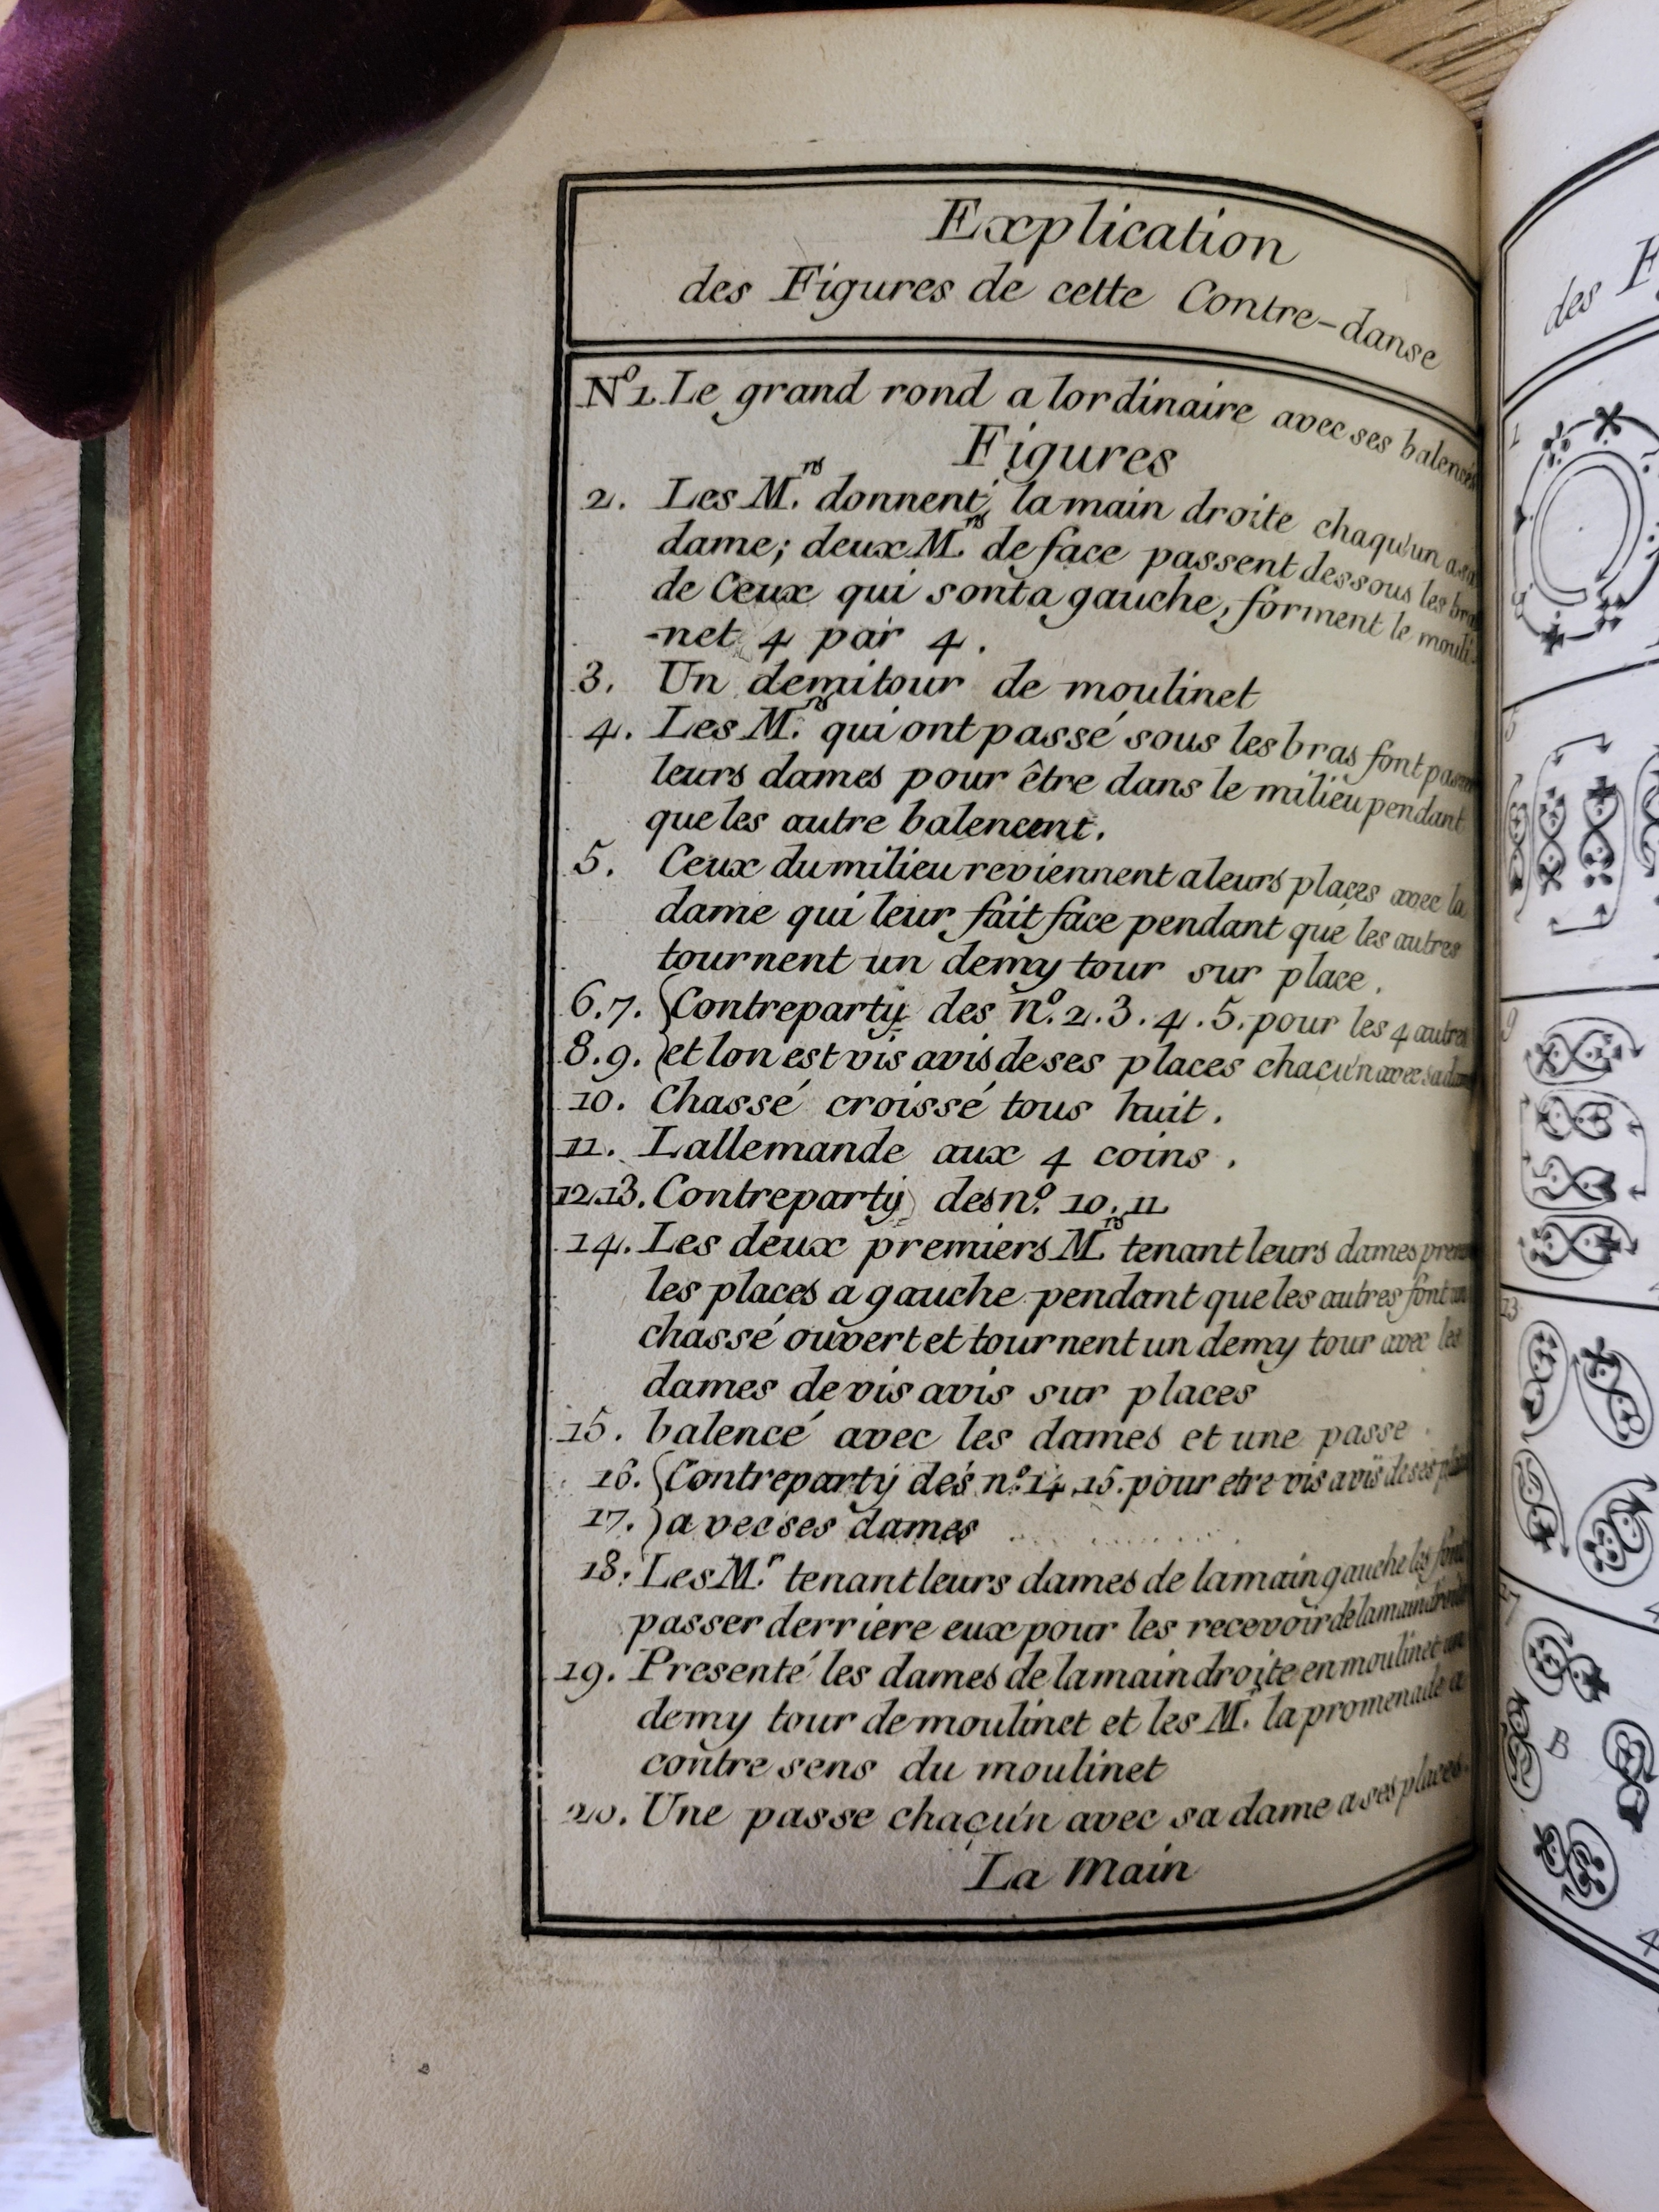 Explication
des Figures de cette Contre-danse
N.º 1. Le grand rond a lordinaire avec ses balencés
Figures
2. Les M.rs donnent la main droite chaqu'un a sa
dame; deux M.rs de face passent dessous les bras
de Ceux qui sont a gauche, forment le mouli-
-net 4 par 4.
3. Un demi tour de moulinet
4. Les M.rs qui ont passé sous les bras font passer
leurs dames pour être dans le milieu pendant
que les autre balencent.
5. Ceux du milieu reviennent a leurs places avec la
dame qui leur fait face pendant que les autres
tournent un demy tour sur place.
6.7. Contreparty des n.º 2.3.4.5. pour les 4 autres
8.9. et lon est vis avis de ses places chacu'n avec sa dame
10. Chassé croissé tous huit.
11. Lallemande aux 4 coins.
12.13. Contreparty des n.º 10.11
14. Les deux premiers M.rs tenant leurs dames
les places a gauche pendant que les autres font un
chassé ouvert et tournent un demy tour avec les
dames de vis avis sur places
15. balencé avec les dames et une passe.
16. Contreparty des n.º 14.15. pour etre vis avis de ses places
17. avec ses dames
18. Les M.r tenant leurs dames de la main gauche les font
passer derriere eux pour les recevoir de la main droite
19. Presenté les dames de la main droite en moulinet un
demy tour de moulinet et les M.rs la promenade a
contre sens du moulinet
20. Une passe chacu'n avec sa dame a ses places.
La Main
des
1
5
9
13
17
B
4